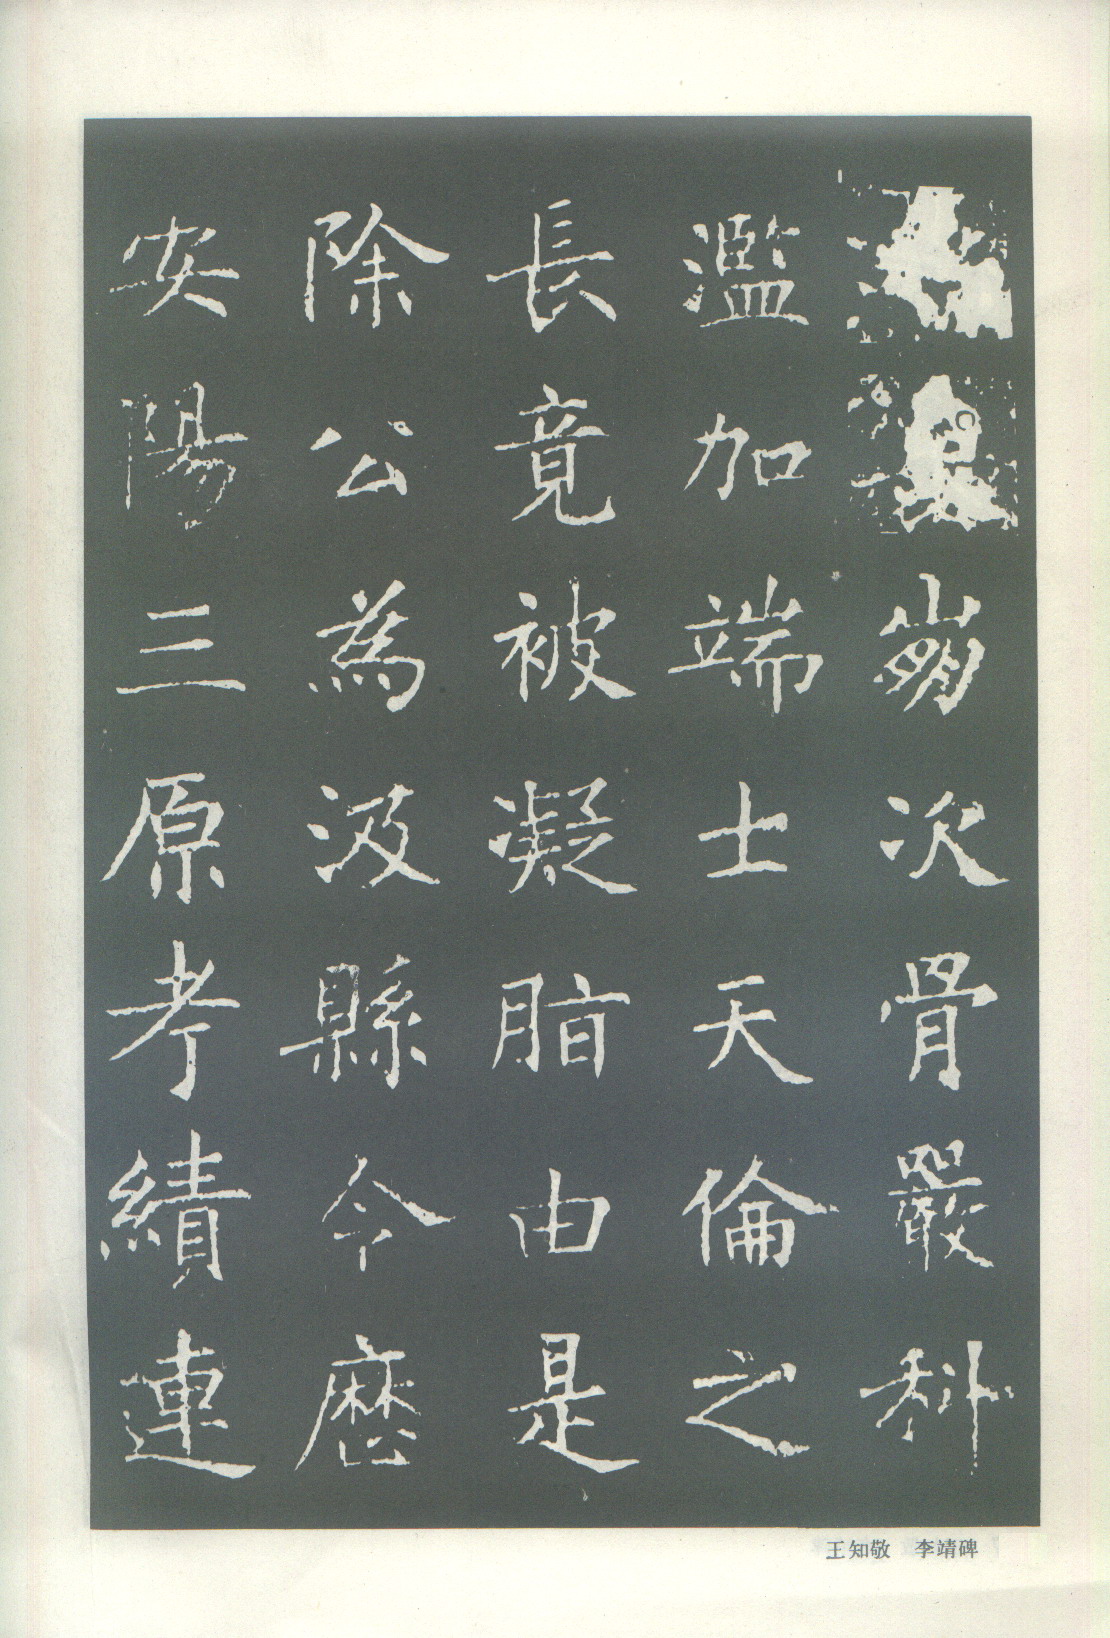 次骨嚴科
濫加端士天倫之
長竟被凝脂由是
除公為汲縣令歷
安陽三原考績連
王知敬 李靖碑